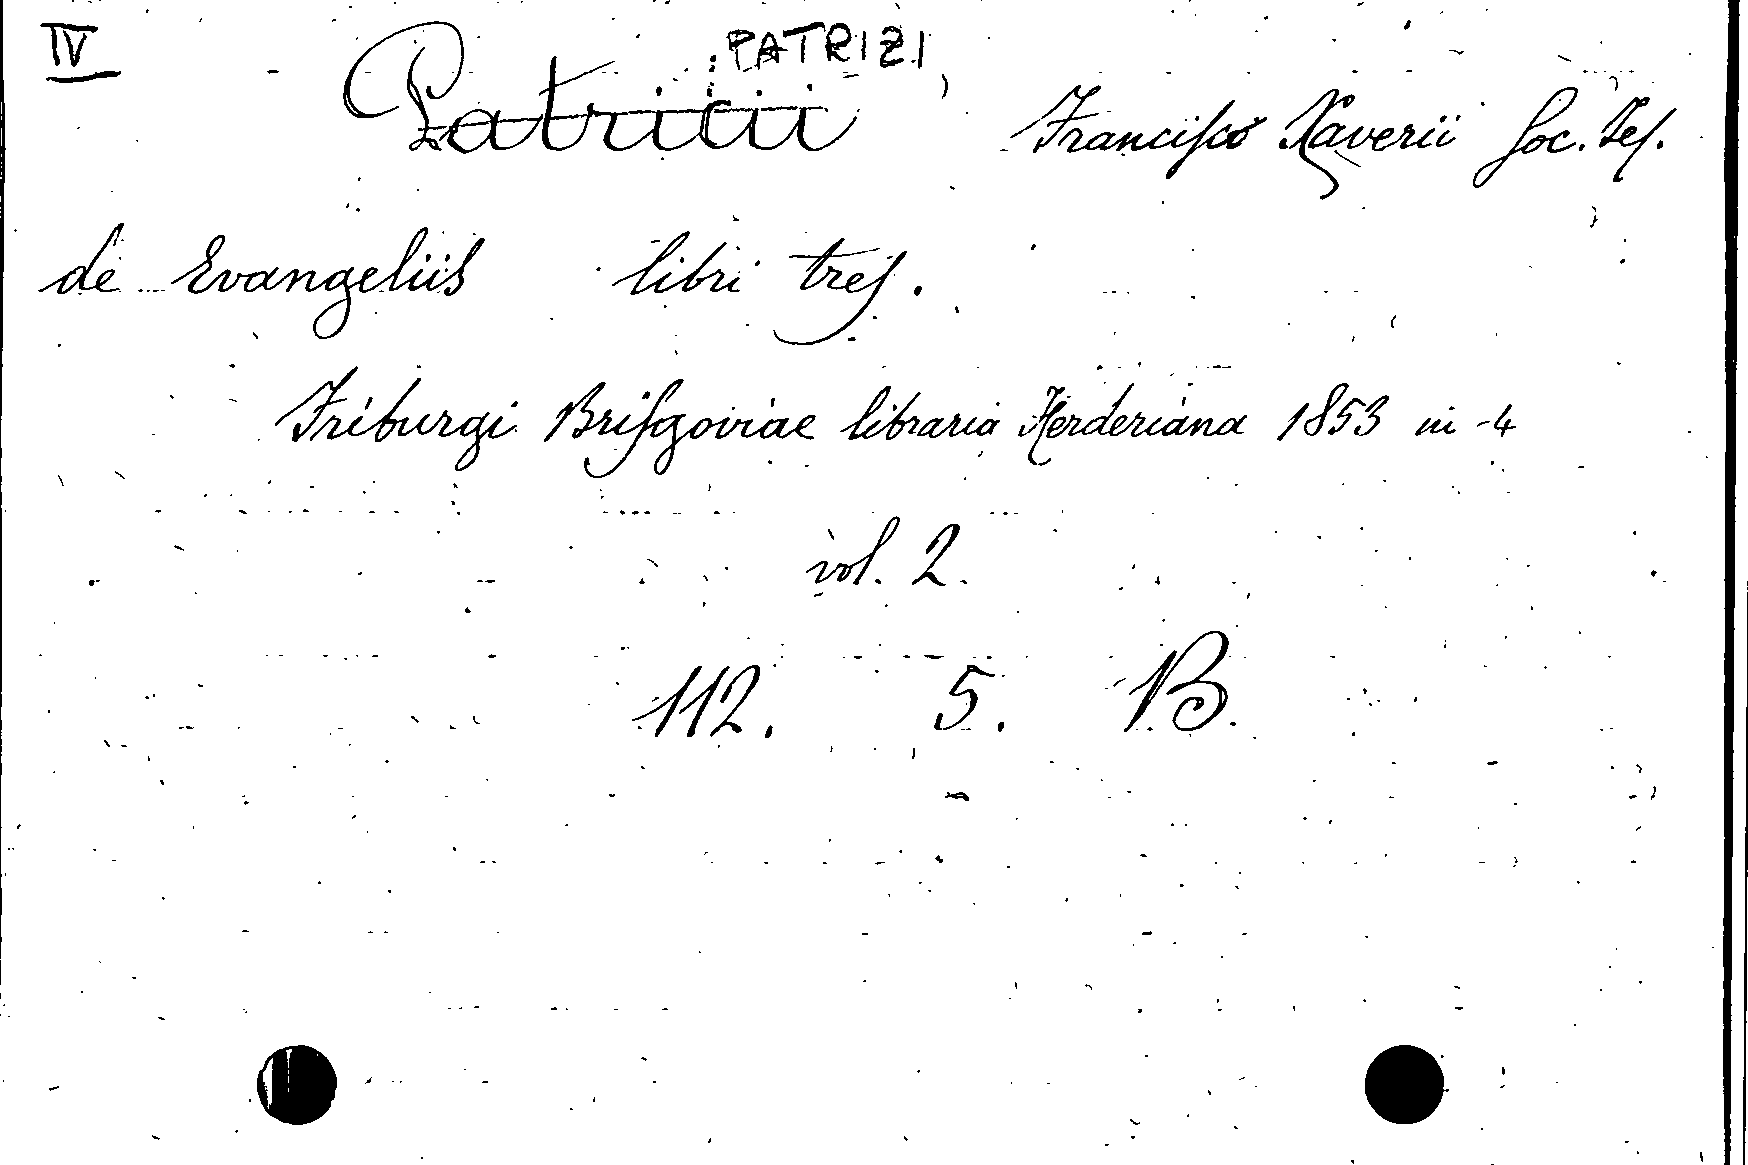 IV PATRIZI,
Patricii Francisco Xaverii Soc. Jes.
de Evangeliis libri tres.
Friburgi Brisgoviae libraria Herderiana 1853 in-4
vol. 2.
112. 5. B.